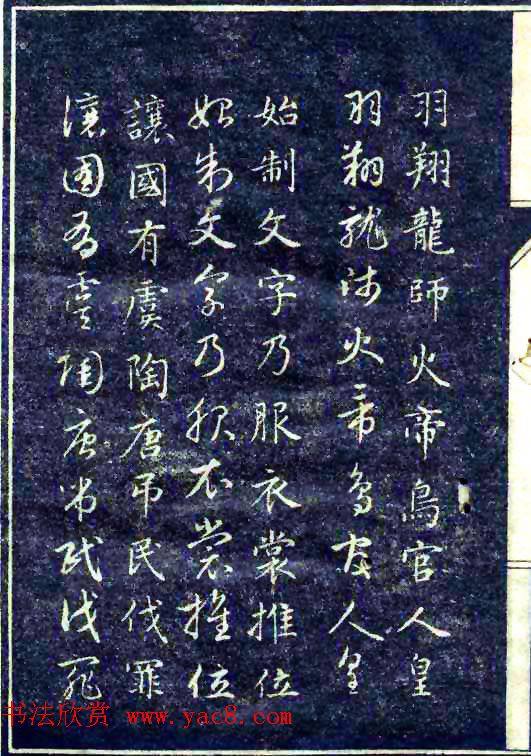 羽翔龍師火帝鳥官人皇
羽翔龍師火帝鳥官人皇
始制文字乃服衣裳推位
始制文字乃服衣裳推位
讓國有虞陶唐弔民伐罪
讓國有虞陶唐弔民伐罪
书法欣赏 www.yac8.com